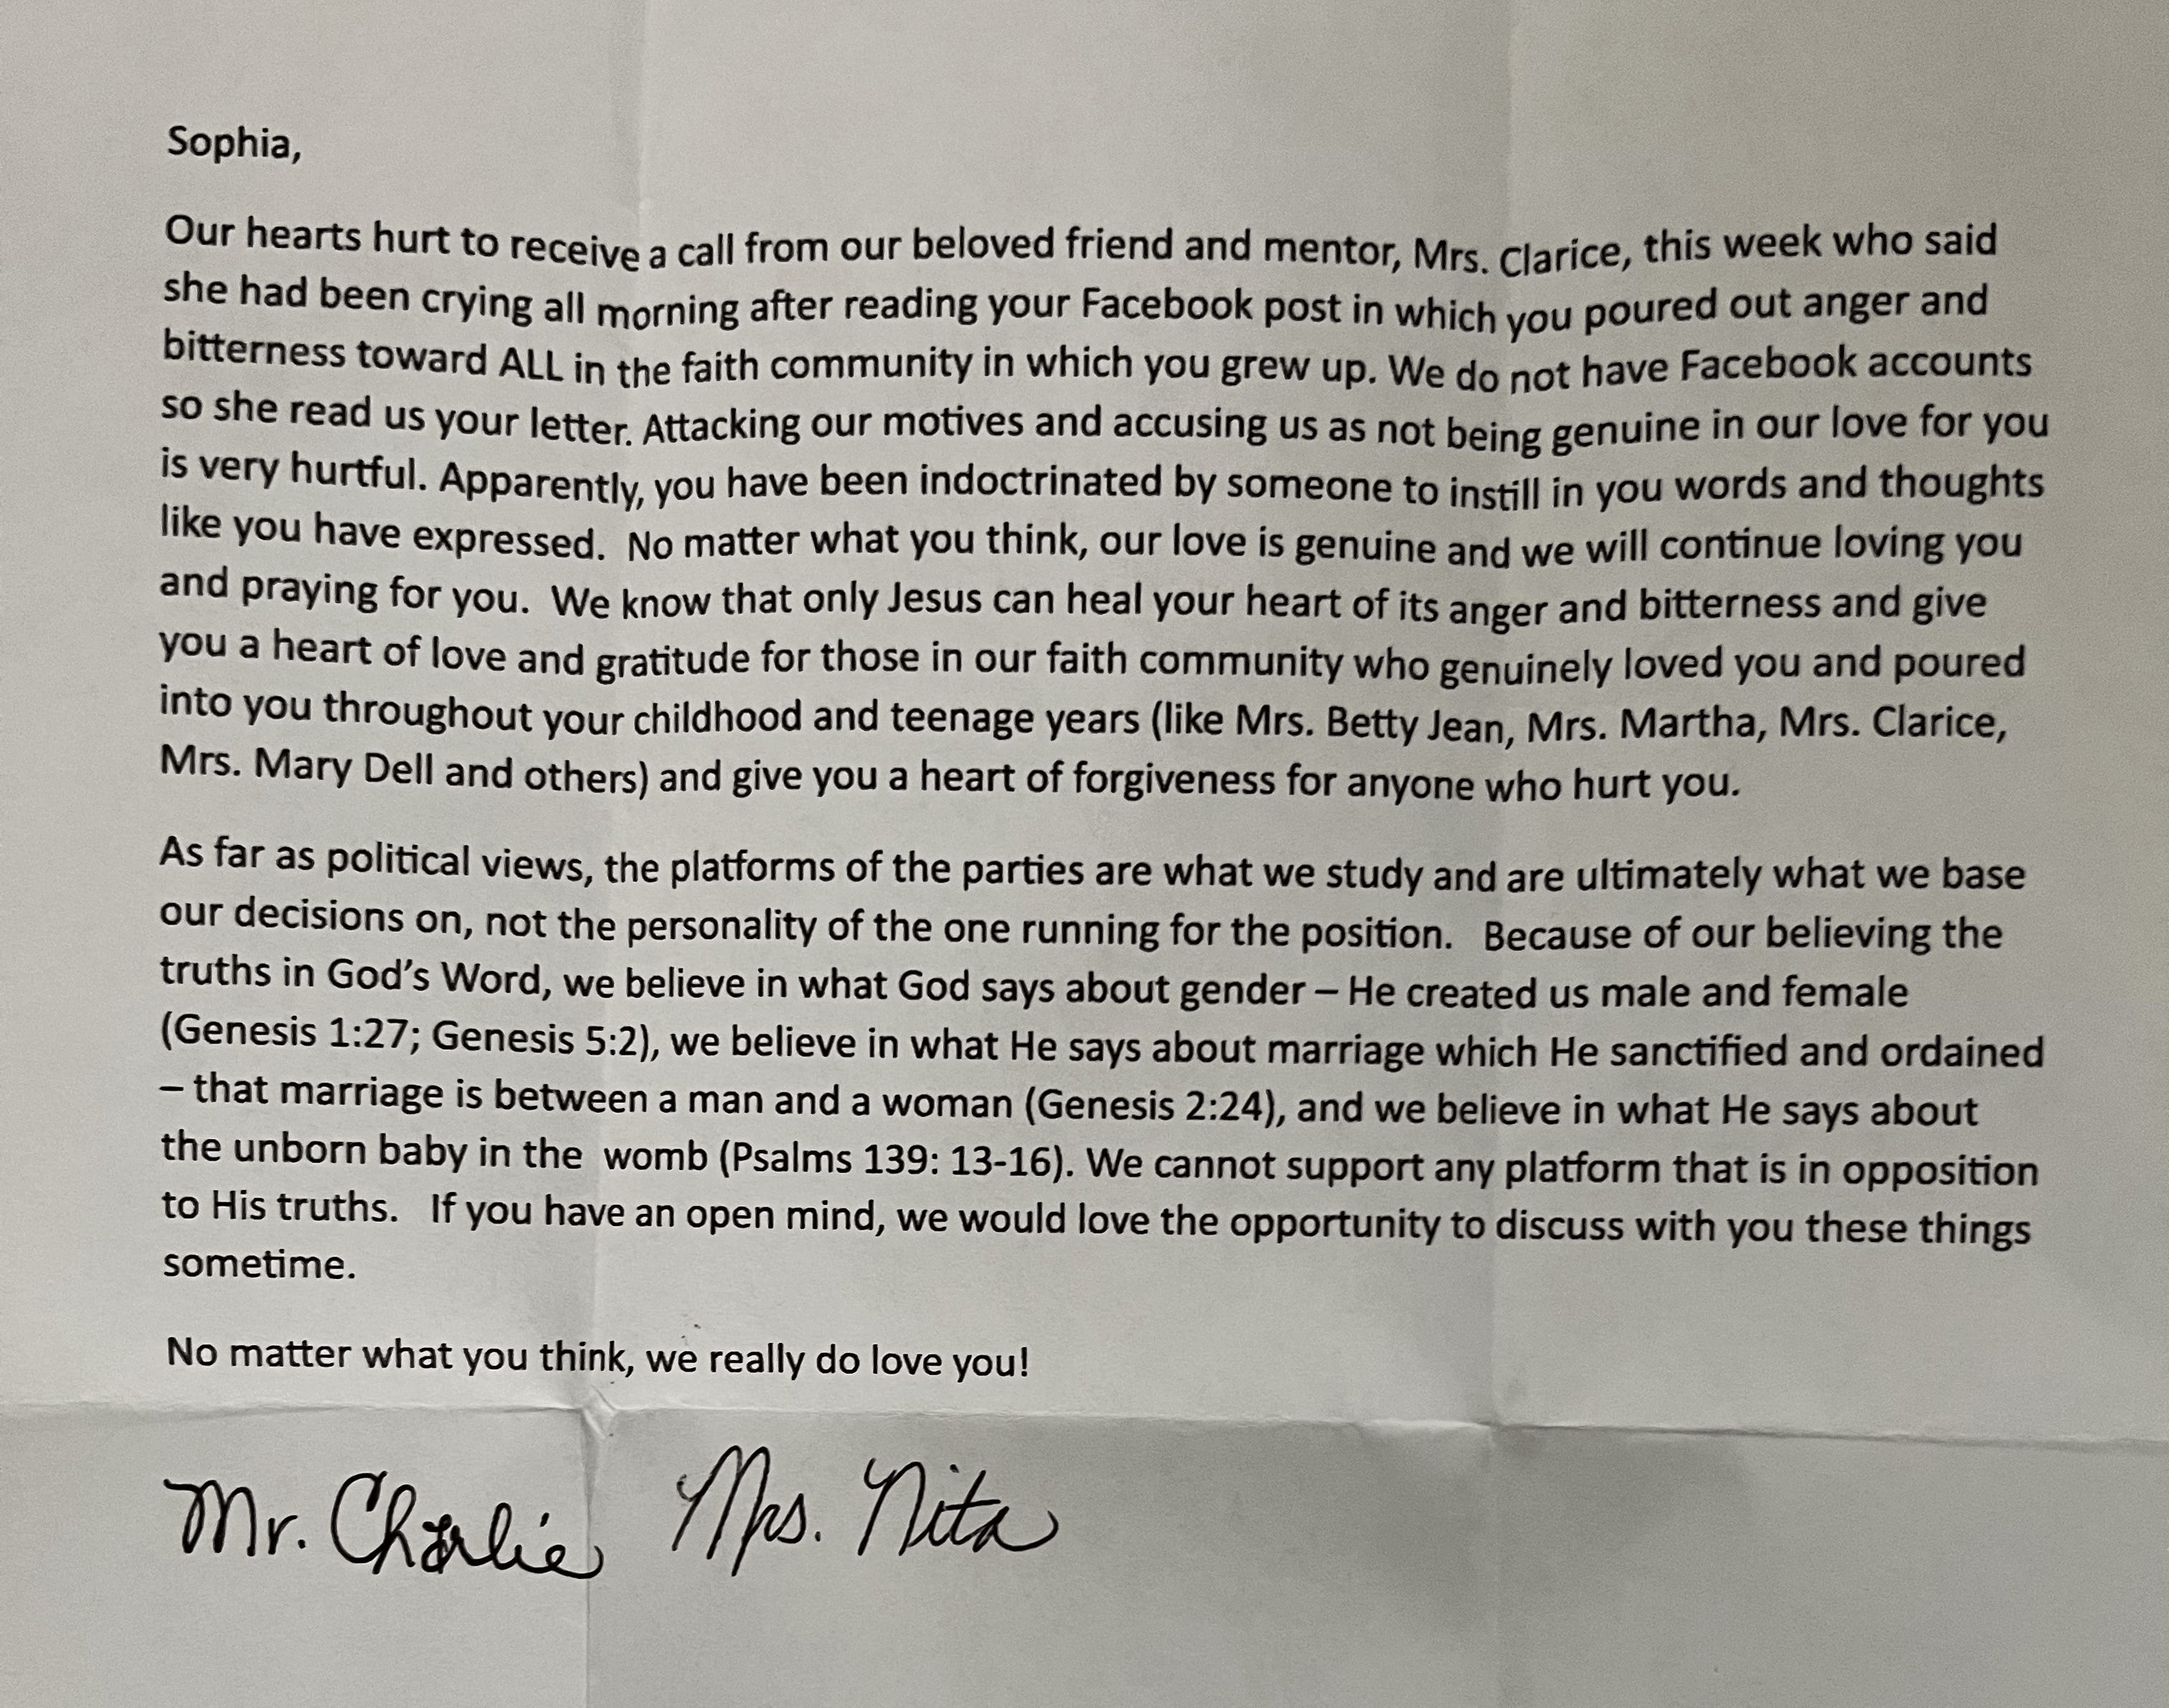 Sophia,
Our hearts hurt to receive a call from our beloved friend and mentor, Mrs. Clarice, this week who said
she had been crying all morning after reading your Facebook post in which you poured out anger and
bitterness toward ALL in the faith community in which you grew up. We do not have Facebook accounts
so she read us your letter. Attacking our motives and accusing us as not being genuine in our love for you
is very hurtful. Apparently, you have been indoctrinated by someone to instill in you words and thoughts
like you have expressed.  No matter what you think, our love is genuine and we will continue loving you
and praying for you.  We know that only Jesus can heal your heart of its anger and bitterness and give
you a heart of love and gratitude for those in our faith community who genuinely loved you and poured
into you throughout your childhood and teenage years (like Mrs. Betty Jean, Mrs. Martha, Mrs. Clarice,
Mrs. Mary Dell and others) and give you a heart of forgiveness for anyone who hurt you.
As far as political views, the platforms of the parties are what we study and are ultimately what we base
our decisions on, not the personality of the one running for the position.   Because of our believing the
truths in God’s Word, we believe in what God says about gender – He created us male and female
(Genesis 1:27; Genesis 5:2), we believe in what He says about marriage which He sanctified and ordained
– that marriage is between a man and a woman (Genesis 2:24), and we believe in what He says about
the unborn baby in the  womb (Psalms 139: 13-16). We cannot support any platform that is in opposition
to His truths.   If you have an open mind, we would love the opportunity to discuss with you these things
sometime.
No matter what you think, we really do love you!
Mr. Charlie   Mrs. Nita